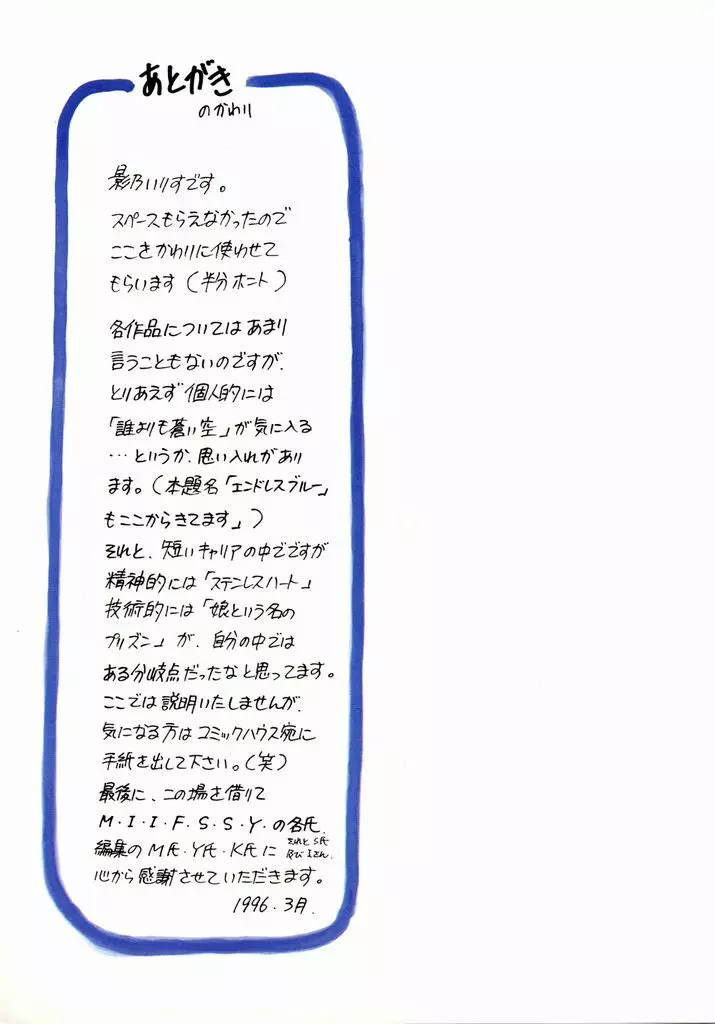 あとがき
のかわり
影乃いりすです。
スペースもらえなかったので
ここをかわりに使わせて
もらいます(半分ホント)
各作品についてはあまり
言うこともないのですが、
とりあえず個人的には
「誰よりも蒼い空」が気に入る
…というか、思い入れがあり
ます。(本題名「エンドレスブルー」
もここからきてます」)
それと、短いキャリアの中でですが
精神的には「ステンレスハート」
技術的には「娘という名の
プリズン」が、自分の中では
ある分岐点だったなと思ってます。
ここでは説明いたしませんが、
気になる方はコミックハウス宛に
手紙を出して下さい。(笑)
最後に、この場を借りて
M・I・I・F・S・S・Y・の各氏、
編集のM氏・Y氏・K氏に それとS氏 及びIさん、
心から感謝させていただきます。
1996.3月.